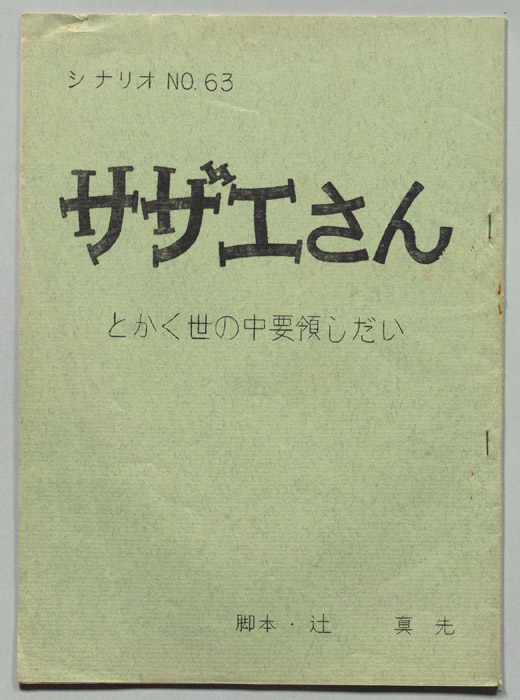 シナリオ NO.63
サザエさん
とかく世の中要領しだい
脚本・辻 真先